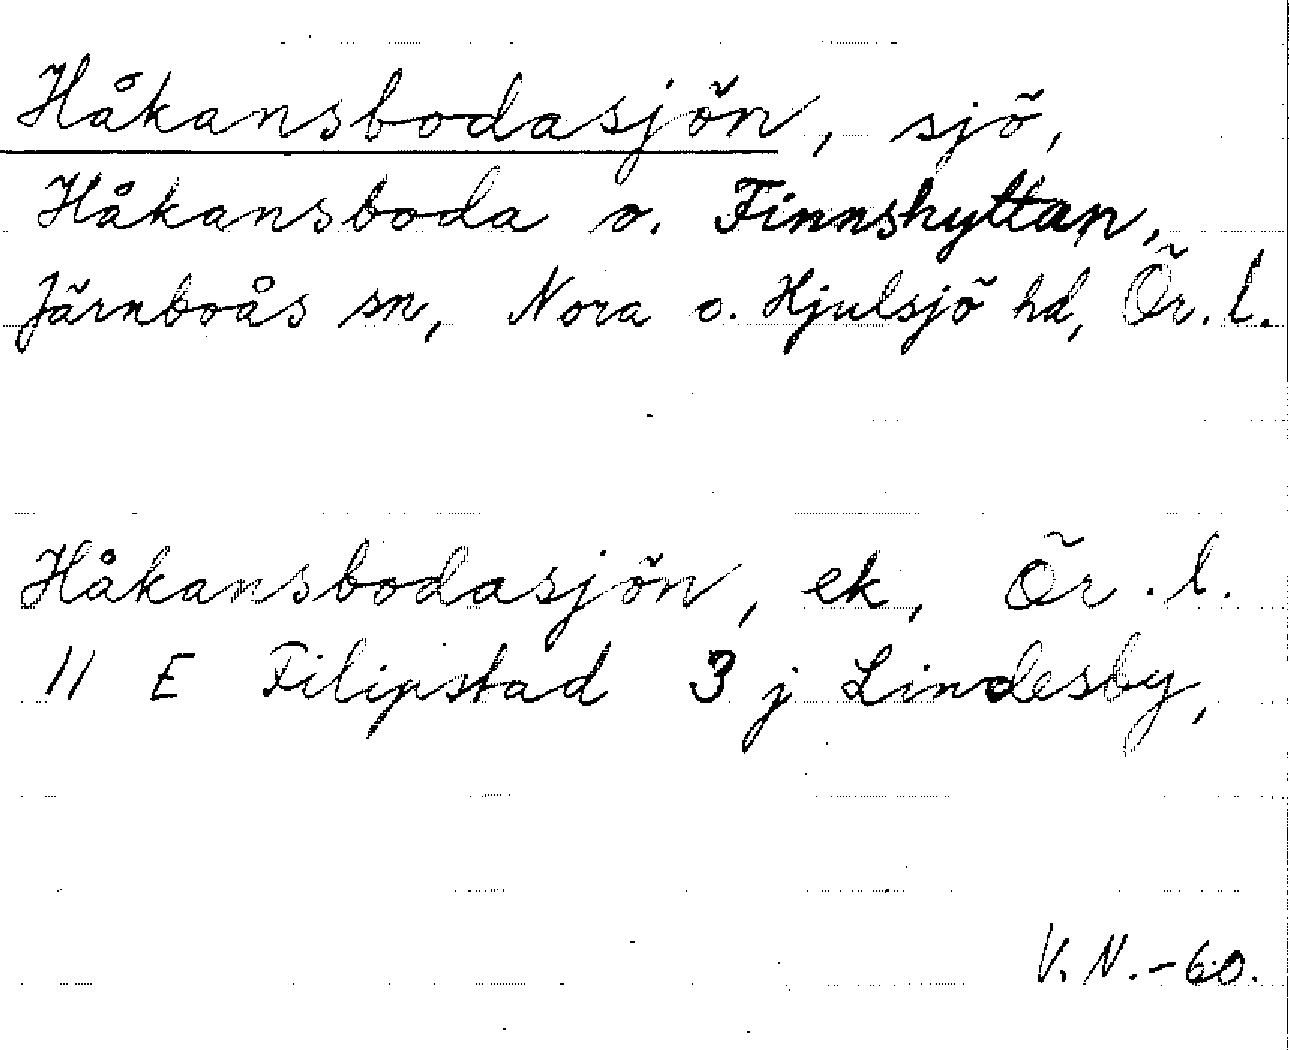 Håkansbodasjön, sjö,
Håkansboda o. Finnshyttan,
Järnboås sn, Nora o. Hjulsjö hd, Ör. l.
Håkansbodasjön, ek, Ör. l.
11 E Filipstad 3 j Lindesby,
V. N. -60.